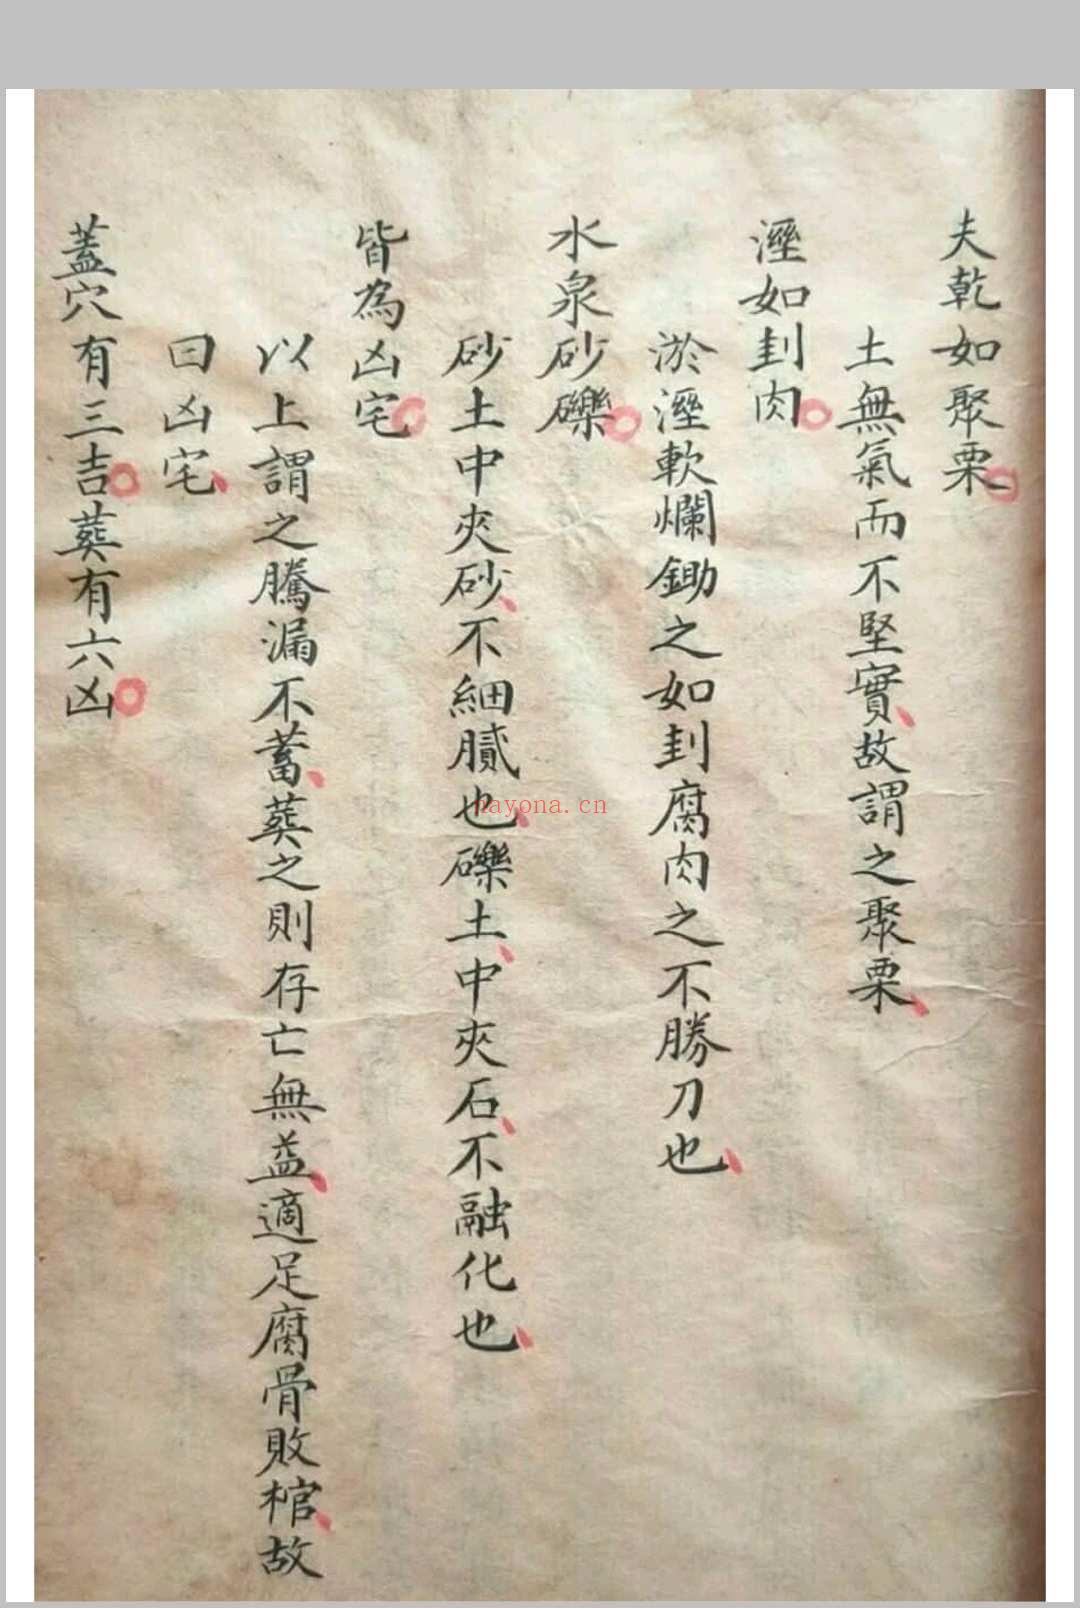 夫乾如聚粟
土無氣而不堅實故謂之聚粟
溼如刲肉
淤溼軟爛鋤之如刲腐肉之不勝刀也
水泉砂礫
砂土中夾砂不細膩也礫土中夾石不融化也
皆為凶宅
以上謂之騰漏不蓄葬之則存亡無益適足腐骨敗棺故
曰凶宅
蓋穴有三吉葬有六凶
nayona.cn